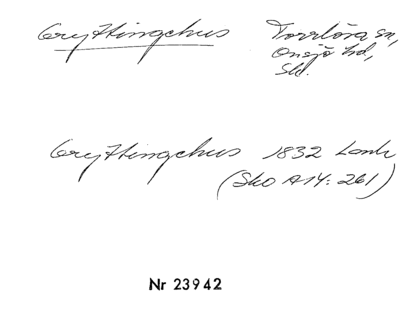 Gryttingehus Torrlösa sn,
Onsjö hd,
Skå.
Gryttingehus 1832 Lantm
(Sko A14: 261)
Nr 23942